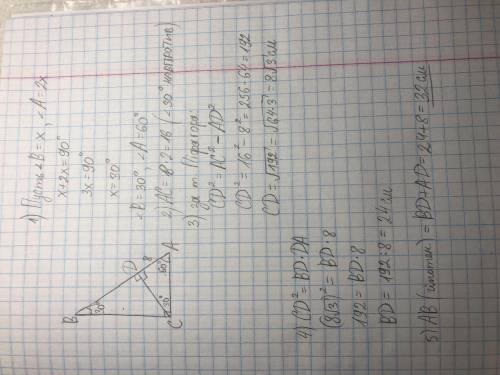 1) Пусть ∠B = x, ∠A = 2x
x+2x=90°
3x=90°
x=30°
∠B=30°, ∠A=60°
2) AC = 8·2=16 (∠30° напротив)
3) за т. Пифагора:
CD² = AC² - AD²
CD² = 16² - 8² = 256-64=192
CD = √192 = √64·3 = 8√3 см
B
30°
D
8
60°
A
30°
C
4) CD² = BD·DA
(8√3)² = BD·8
192 = BD·8
BD = 192:8 = 24 см
5) AB (гипотен) = BD+AD = 24+8 = 32 см